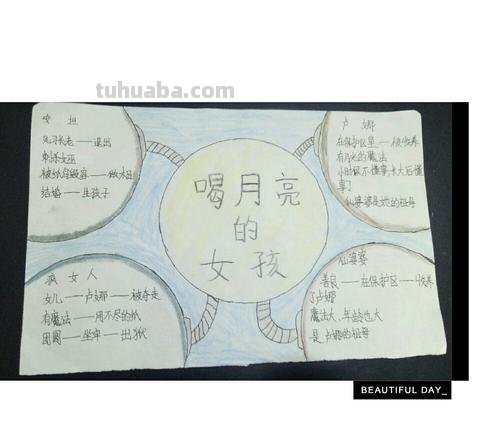 tuhuaba.com
安 坦
见习长老——退出
刺杀女巫
被纸鸟毁容——做木匠
结婚——生孩子
卢 娜
在保护区里——被收养
有月光的魔法
小时候不懂事，长大后懂
事了
仙婆婆是她的祖母
喝月亮
的
女孩
疯女人
女儿——卢娜——被夺走
有魔法——用不尽的纸
团圆——坐牢——出狱
仙婆婆
善良——在保护区——收养
了卢娜
魔法大、年龄也大
是卢娜的祖母
BEAUTIFUL DAY_